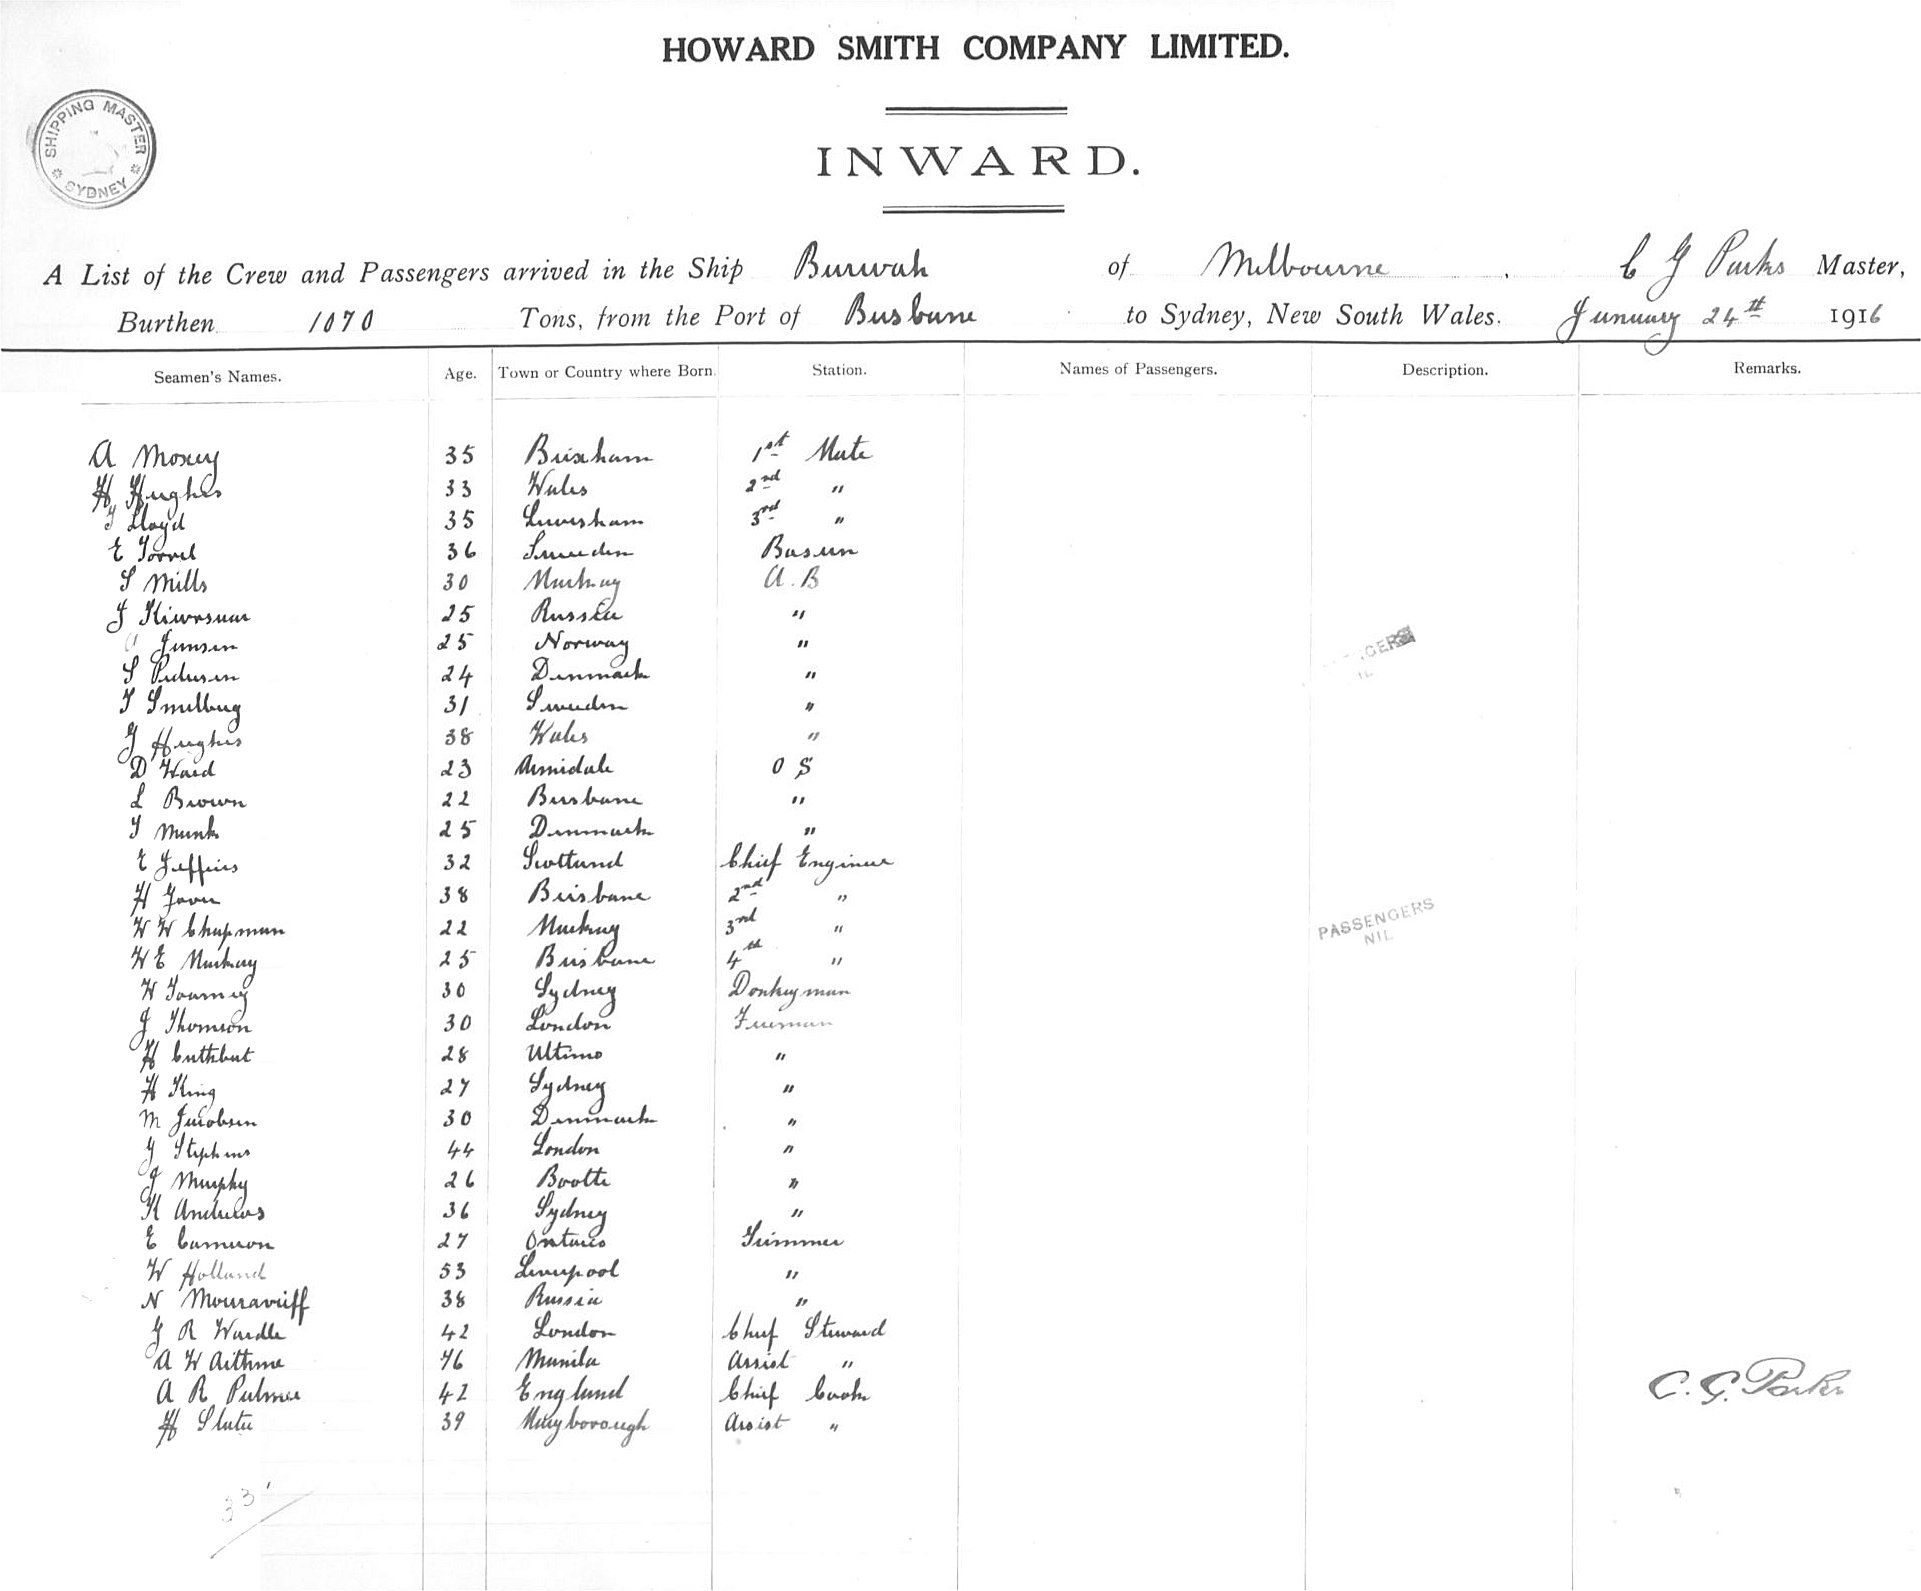 HOWARD SMITH COMPANY LIMITED.
SHIPPING MASTER SYDNEY
INWARD.
A List of the Crew and Passengers arrived in the Ship Burwah of Melbourne, C G Parks Master,
Burthen 1070 Tons, from the Port of Brisbane to Sydney, New South Wales. January 24th 1916
Seamen's Names. Age. Town or Country where Born. Station. Names of Passengers. Description. Remarks.
A Moxey 35 Brixham 1st Mate
H Hughes 33 Wales 2nd "
T Lloyd 35 Lewisham 3rd "
E Torrel 36 Sweeden Bosun
S Mills 30 Mackay A.B
J 25 Russia "
Jensen 25 Norway "
S Pedersen 24 Denmark "
T Smelburg 31 Sweeden "
J Hughes 38 Wales "
D Ward 23 Armidale O S
L Brown 22 Brisbane "
T Munk 25 Denmark "
E Jeffries 32 Scotland Chief Engineer
H 38 Brisbane 2nd "
W W Chapman 22 Mackay 3rd "
W E Mackay 25 Brisbane 4th "
PASSENGERS
NIL
W 30 Sydney Donkeyman
J Thomson 30 London Fireman
H Cuthbert 28 Ultimo "
H King 27 Sydney "
M Jacobsen 30 Denmark "
G Stephens 44 London "
J Murphy 26 Bootle "
K Andrews 36 Sydney "
E Cameron 27 Ontario Trimmer
W Holland 53 Liverpool "
N Mouravieff 38 Russia "
G R Wardle 42 London Chief Steward
A W 46 Manila Assist "
A R Palmer 42 England Chief Cook
C. G. Parks
H Slater 39 Maryborough Assist "
33